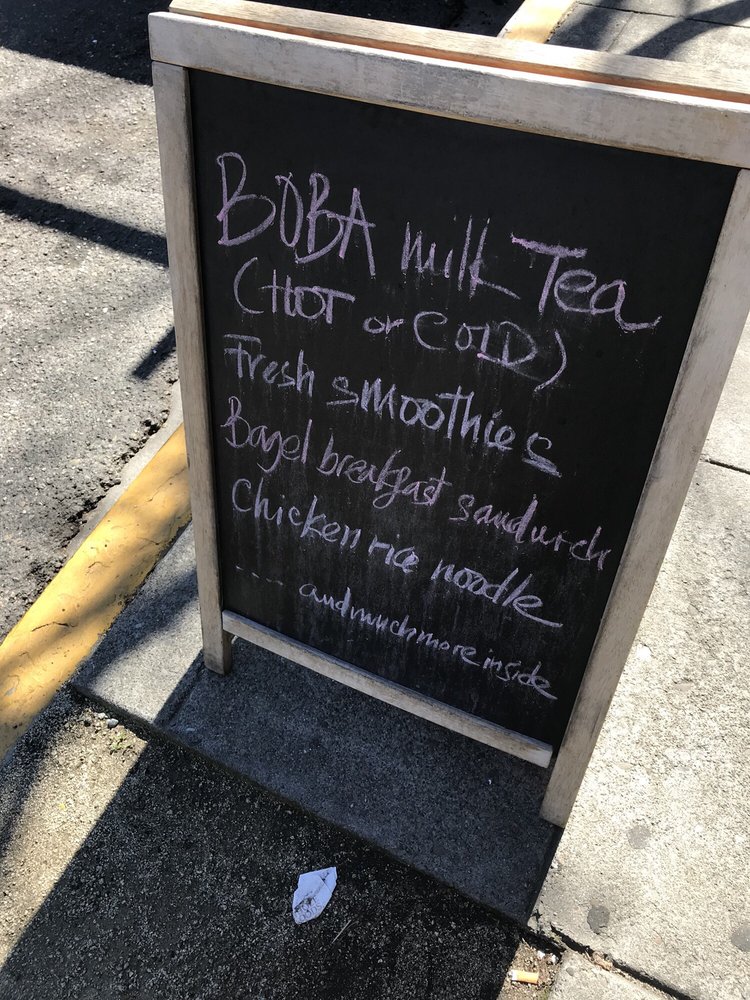 BOBA milk Tea
(HOT or COLD)
Fresh smoothies
Bagel breakfast sandwich
Chicken rice noodle
---- and much more inside